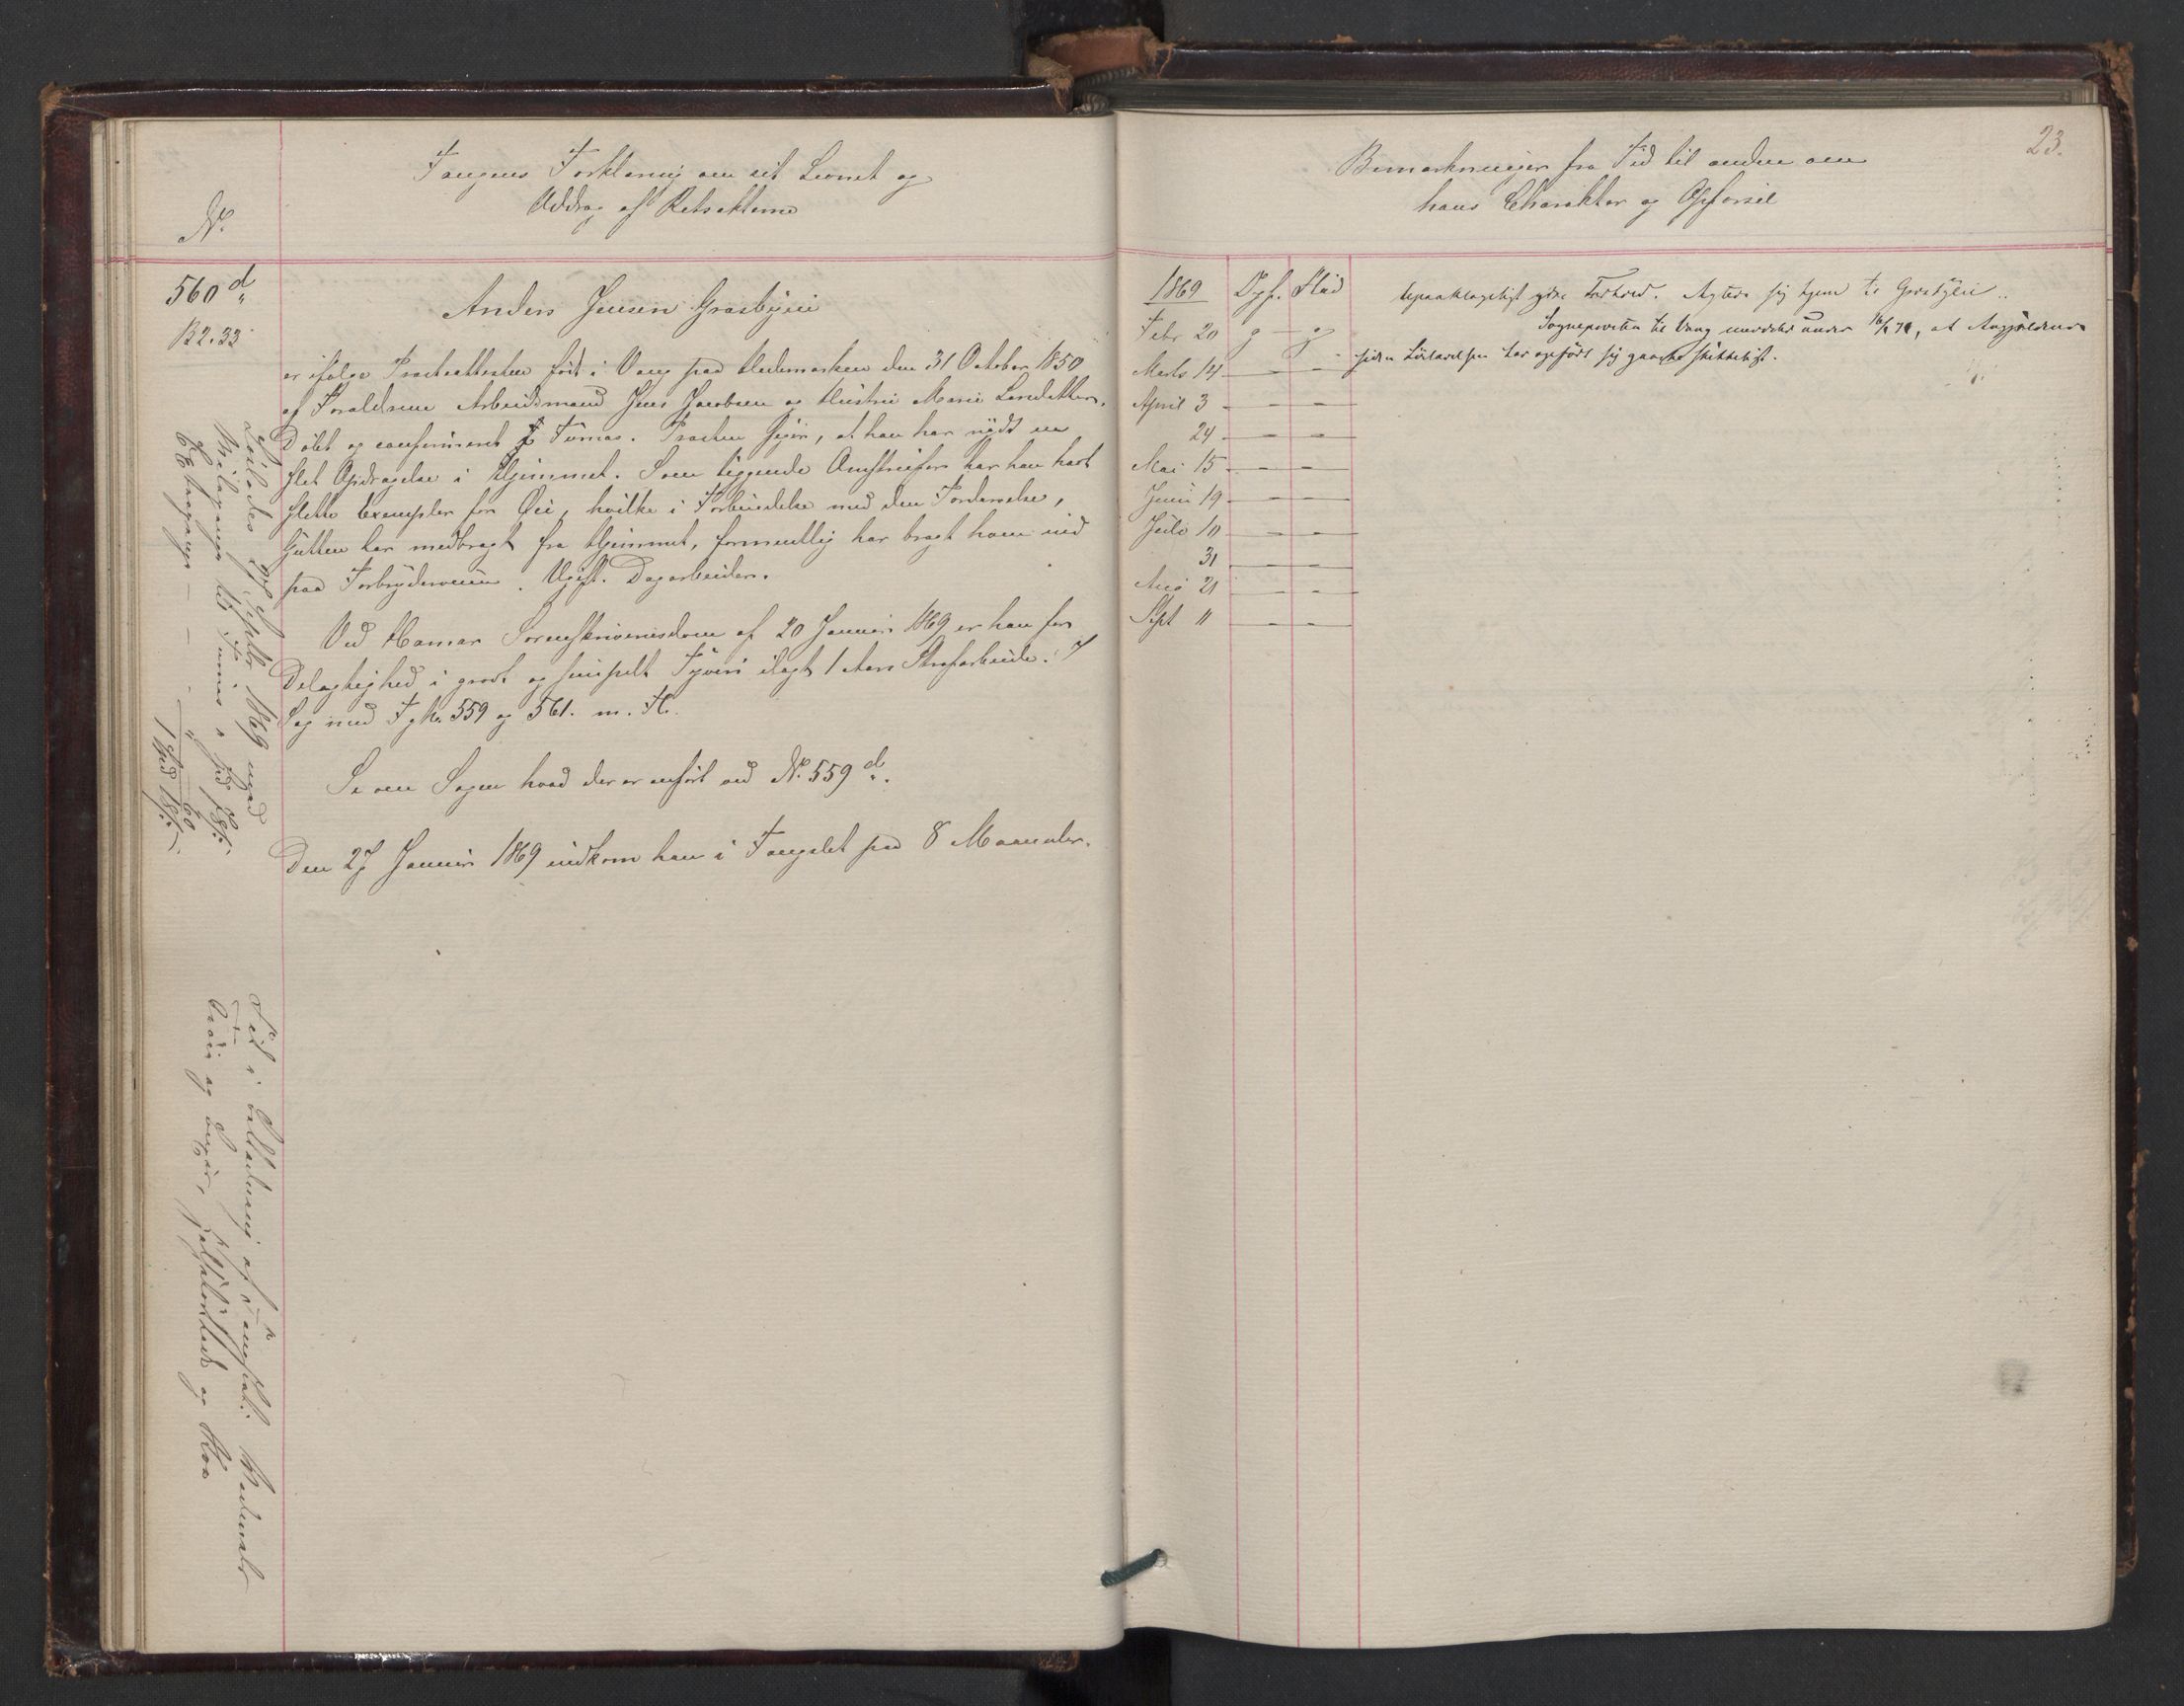 Fangens Forklaring om sit Levnet og
Uddrag af Retsakterne
No.
560 d.
B 2. 33
Anders Jensen Græsbyeie
er ifølge Præsteattesten født i Vang paa Hedemarken den 31 October 1850
af Forældrene Arbeidsmand Jens Jacobsen og Hustru Marie Larsdatter.
Døbt og confirmeret i Furnæs. Præsten siger, at han har nydt en
slet Opdragelse i Hjemmet. Som liggende Omstreifer har han havt
slette Exempler for Øie, hvilke i Forbindelse med den Fordærvelse,
Gutten har medbragt fra Hjemmet, formentlig har bragt ham ind
paa Forbryderveien. Ugift. Dagarbeider.
Ved Hamar Sorenskriverisdom af 20 Januar 1869 er han for
Delagtighed i grovt og simpelt Tyveri ilagt 1 Aars Strafarbeide. I
Sag med F. No. 559 og 561. m. Fl.
Se om Sagen hvad der er anført ved No. 559 d.
Den 27 Januar 1869 indkom han i Fængslet paa 8 Maaneder.
Løslades 27 Septbr 1869 med
Reisepenge til Furnæs
Fik i Udladning af Fængslet:
23.
Bemærkninger fra Tid til anden om
hans Charakter og Opførsel
1869 Opf. Flid
Febr 20 g g
Marts 14 — —
April 3 — —
24 — —
Mai 15 — —
Juni 19 — —
Juli 10 — —
31 — —
Aug 21 — —
Sept 11 — —
Upaaklageligt godt Forhold. Agter sig hjem til Græsbyeie.
Sognepresten til Vang meddeler under 16/1 71, at Angjældende
siden Løsladelsen har opført sig ganske skikkeligt.